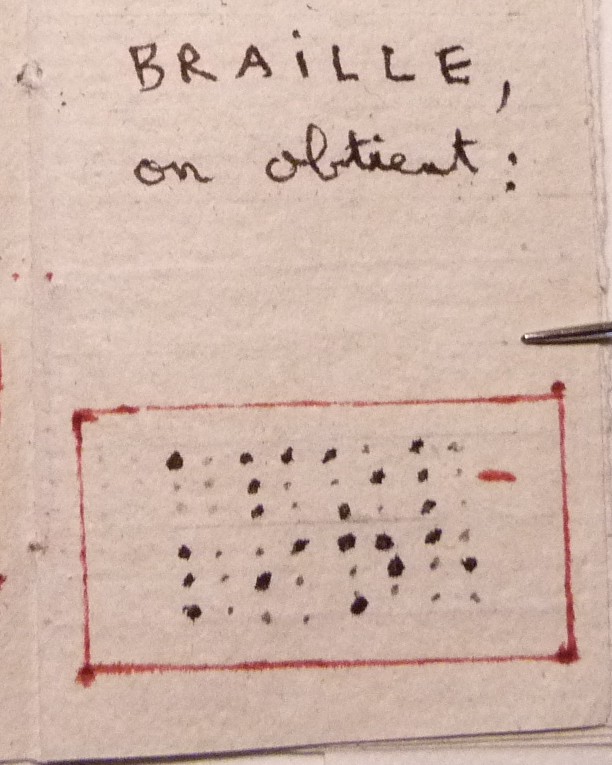 BRAiLLE,
on obtient :
⠁⠏⠕⠇-
⠇⠊⠝⠑